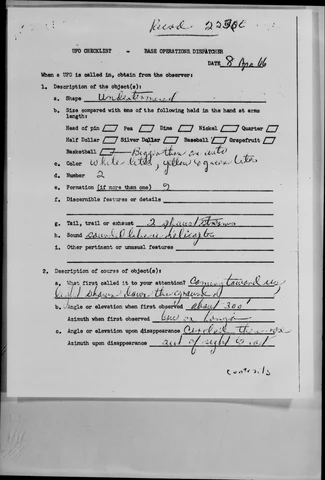 Recd 2230
UFO CHECKLIST - BASE OPERATIONS DISPATCHER
DATE 8 Apr 66
When a UFO is called in, obtain from the observer:
1. Description of the object(s):
a. Shape Undetermined
b. Size compared with one of the following held in the hand at arms
length:
Head of pin Pea Dime Nickel Quarter
Half Dollar Silver Dollar Baseball Grapefruit
Basketball Bigger than an auto
c. Color white lites, yellow & green lites
d. Number 2
e. Formation (if more than one)
f. Discernible features or details
g. Tail, trail or exhaust 2
h. Sound sounded like helicopter
i. Other pertinent or unusual features
2. Description of course of object(s):
a. What first called it to your attention? Coming toward us
light down the ground
b. Angle or elevation when first observed about 300'
Azimuth when first observed low on horizon
c. Angle or elevation upon disappearance Circled the area
Azimuth upon disappearance out of sight to east